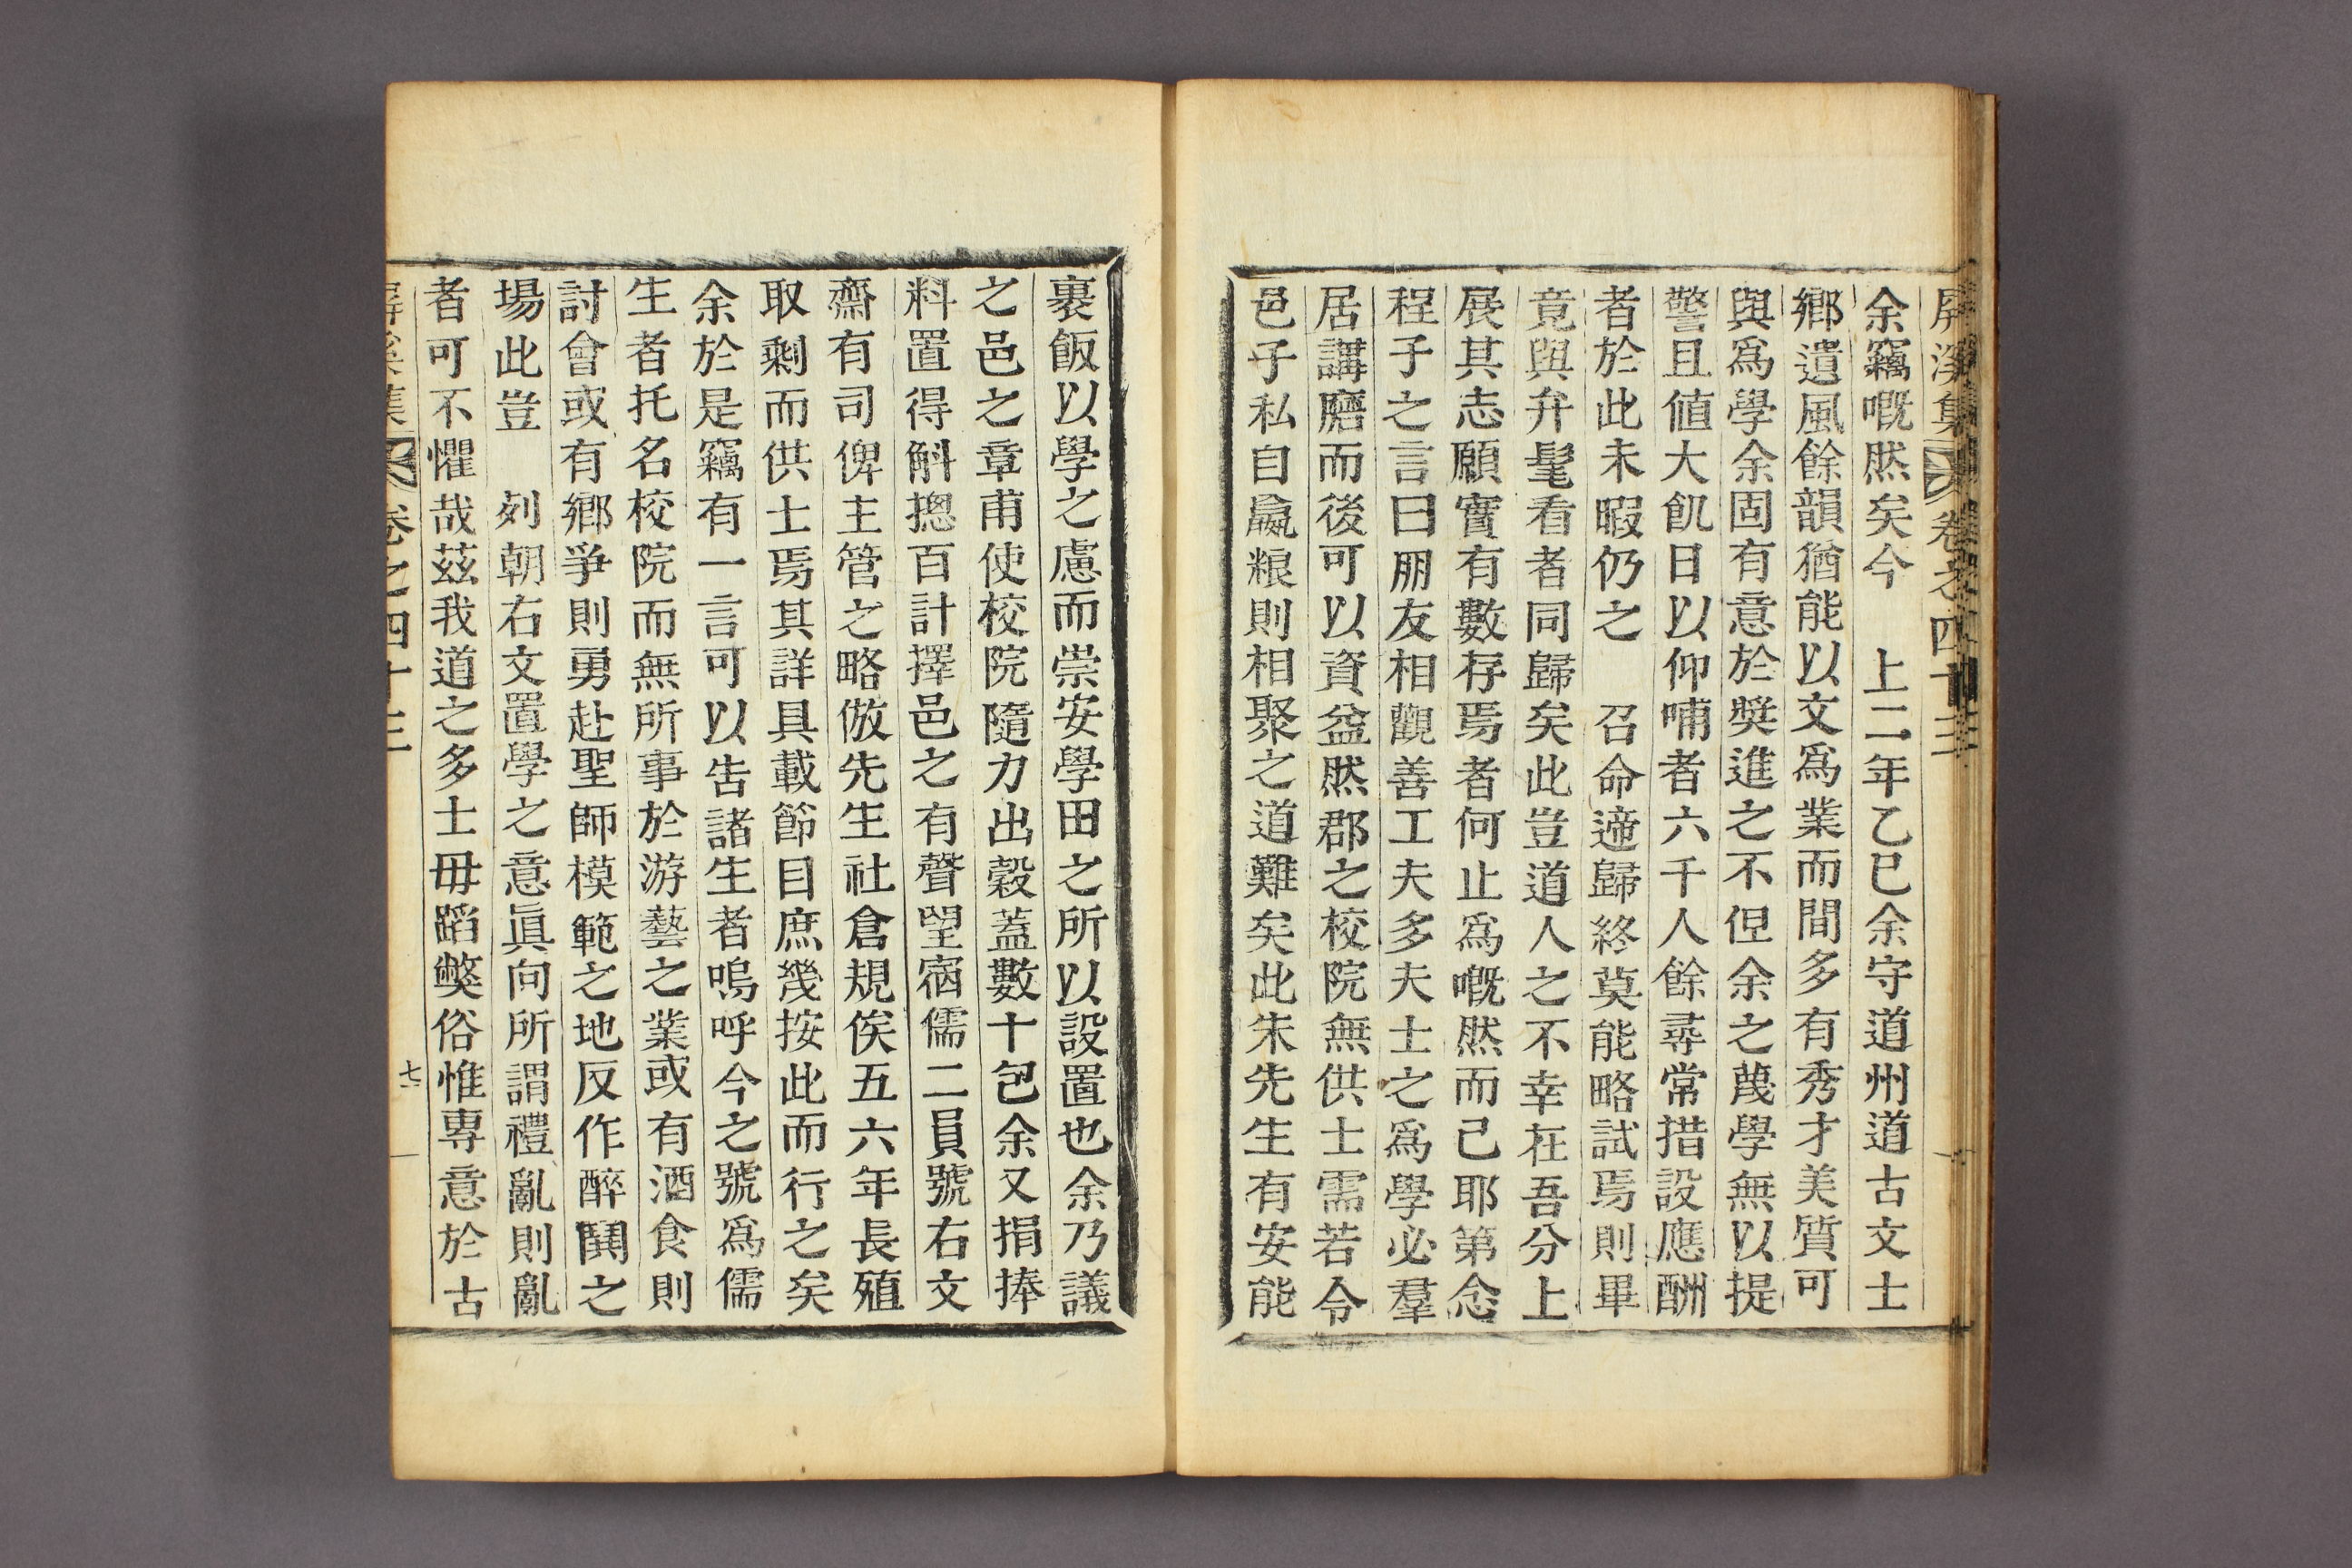 屏溪集 卷之四十三
余竊嘅然矣今 上二年乙巳余守道州道古文士
鄉遺風餘韻猶能以文爲業而間多有秀才美質可
與爲學余固有意於奬進之不但余之蔑學無以提
警且値大飢日以仰哺者六千人餘尋常措設應酬
者於此未暇仍之 召命遆歸終莫能略試焉則畢
竟與弁髦看者同歸矣此豈道人之不幸在吾分上
展其志願實有數存焉者何止爲嘅然而已耶第念
程子之言曰朋友相觀善工夫多夫士之爲學必羣
居講磨而後可以資益然郡之校院無供士需若令
邑子私自贏粮則相聚之道難矣此朱先生有安能
裹飯以學之慮而崇安學田之所以設置也余乃議
之邑之章甫使校院隨力出穀蓋數十包余又捐捧
料置得斛摠百計擇邑之有聲望宿儒二員號右文
齋有司俾主管之略倣先生社倉規俟五六年長殖
取剩而供士焉其詳具載節目庶幾按此而行之矣
余於是竊有一言可以告諸生者嗚呼今之號爲儒
生者托名校院而無所事於游藝之業或有酒食則
討會或有鄉爭則勇赴聖師模範之地反作醉鬪之
場此豈 列朝右文置學之意眞向所謂禮亂則亂
者可不懼哉茲我道之多士毋蹈獘俗惟專意於古
屏溪集 卷之四十三 七